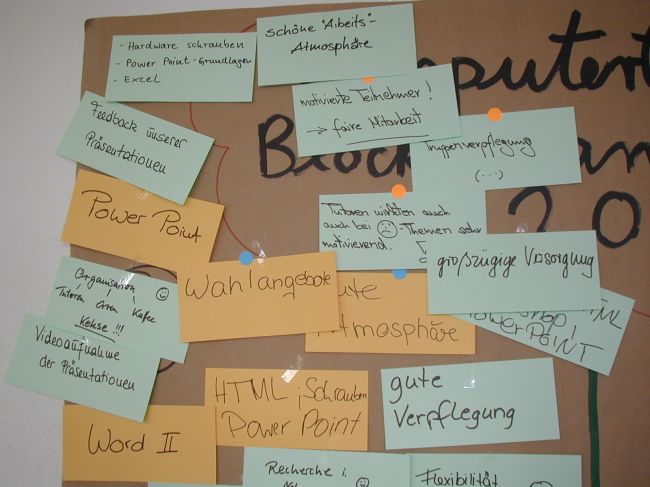 - Hardware schrauben
- Power Point-Grundlagen
- Excel
schöne "Arbeits"-
Atmosphäre
motivierte Teilnehmer!
→ faire Mitarbeit
Truppenverpflegung
(...)
Feedback unserer
Präsentationen
Power Point
Tutoren wirkten auch
auch bei ☹-Themen sehr
motivierend.
großzügige Versorgung
Organisation ☺
Tutoren Orga Kaffee
Kekse !!!
Wahlangebote
gute
Atmosphäre
HTML
PowerPOINT
Videoaufnahme
der Präsentationen
HTML ; Schrauben
Power Point
gute
Verpflegung
Word II
Recherche i.
Flexibilität
Block
2.0